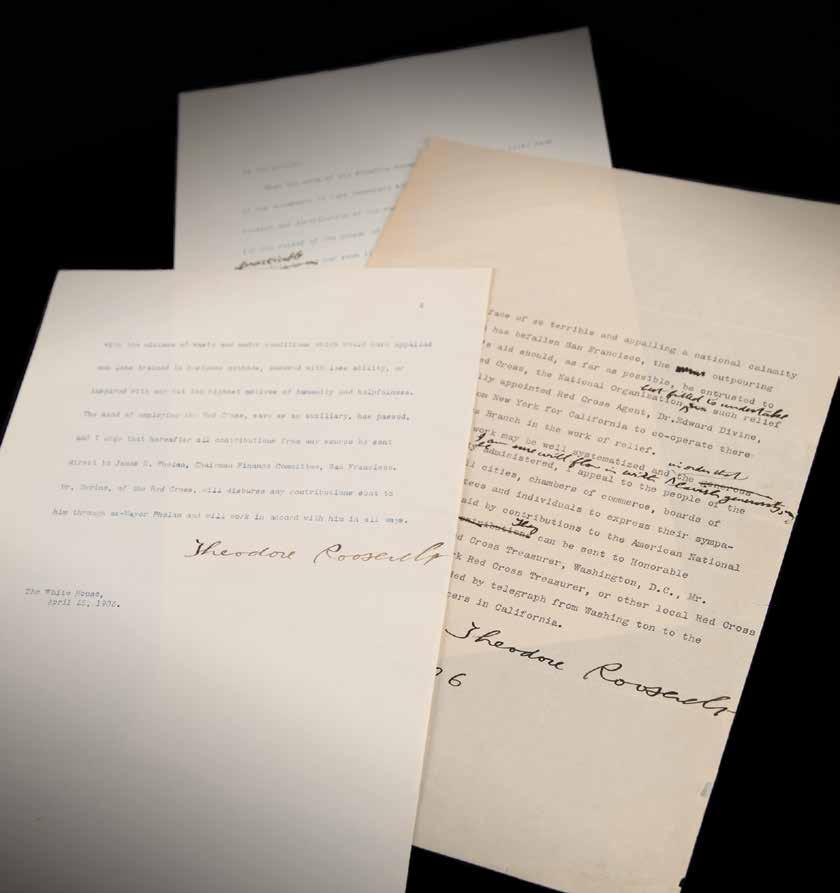 To the Public:
2
with the dismay of wants and under conditions which would have appalled
men less trained in business methods, endowed with less ability, or
inspired with any but the highest motives of humanity and helpfulness.
The need of employing the Red Cross, save as an auxiliary, has passed,
and I urge that hereafter all contributions from our source be sent
direct to James D. Phelan, Chairman Finance Committee, San Francisco.
Dr. Devine, of the Red Cross, will disburse any contributions sent to
him through ex-Mayor Phelan and will work in accord with him in all ways.
Theodore Roosevelt
The White House,
April 25, 1906.
face of so terrible and appalling a national calamity
has befallen San Francisco, the outpouring
's aid should, as far as possible, be entrusted to
ed Cross, the National Organization
but fitted to undertake
such relief
lly appointed Red Cross Agent, Dr. Edward Divine,
om New York for California to co-operate there
s Branch in the work of relief.
in order that
work may be well systematized and the generous
I am sure will flow in with lavish generosity, may
be administered, I appeal to the people of the
ll cities, chambers of commerce, boards of
tees and individuals to express their sympa-
aid by contributions to the American National
They
contributions can be sent to Honorable
d Cross Treasurer, Washington, D.C., Mr.
rk Red Cross Treasurer, or other local Red Cross
ded by telegraph from Washing ton to the
cers in California.
Theodore Roosevelt
06